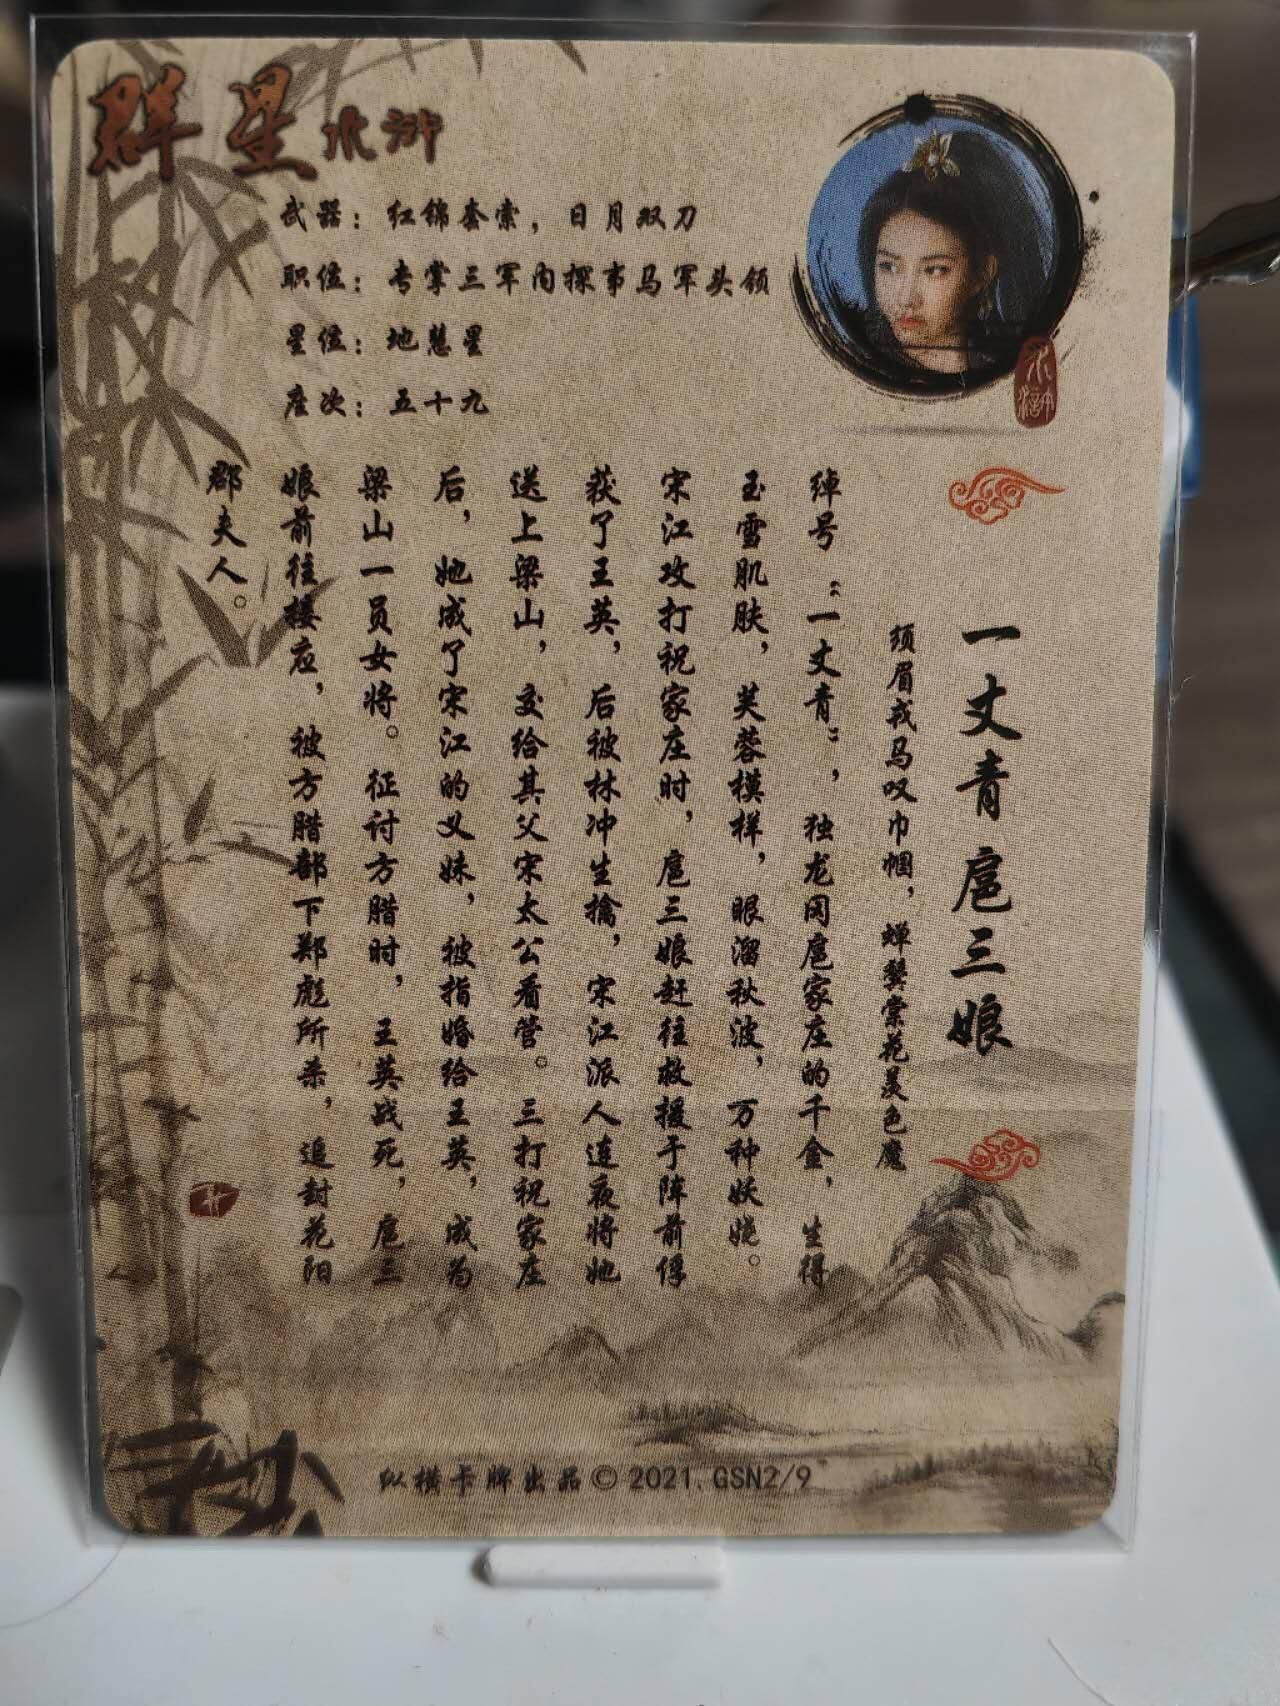 群星水浒
武器：红锦套索，日月双刀
职位：专掌三军内探事马军头领
星位：地慧星
座次：五十九
水浒
一丈青 扈三娘
须眉戎马叹巾帼，蝉鬓棠花羡色魔
绰号：“一丈青”，独龙冈扈家庄的千金，生得
玉雪肌肤，芙蓉模样，眼溜秋波，万种妖娆。
宋江攻打祝家庄时，扈三娘赶往救援于阵前俘
获了王英，后被林冲生擒，宋江派人连夜将她
送上梁山，交给其父宋太公看管。三打祝家庄
后，她成了宋江的义妹，被指婚给王英，成为
梁山一员女将。征讨方腊时，王英战死，扈三
娘前往接应，被方腊部下郑彪所杀，追封花阳
郡夫人。
纵横卡牌出品©2021.GSN2/9